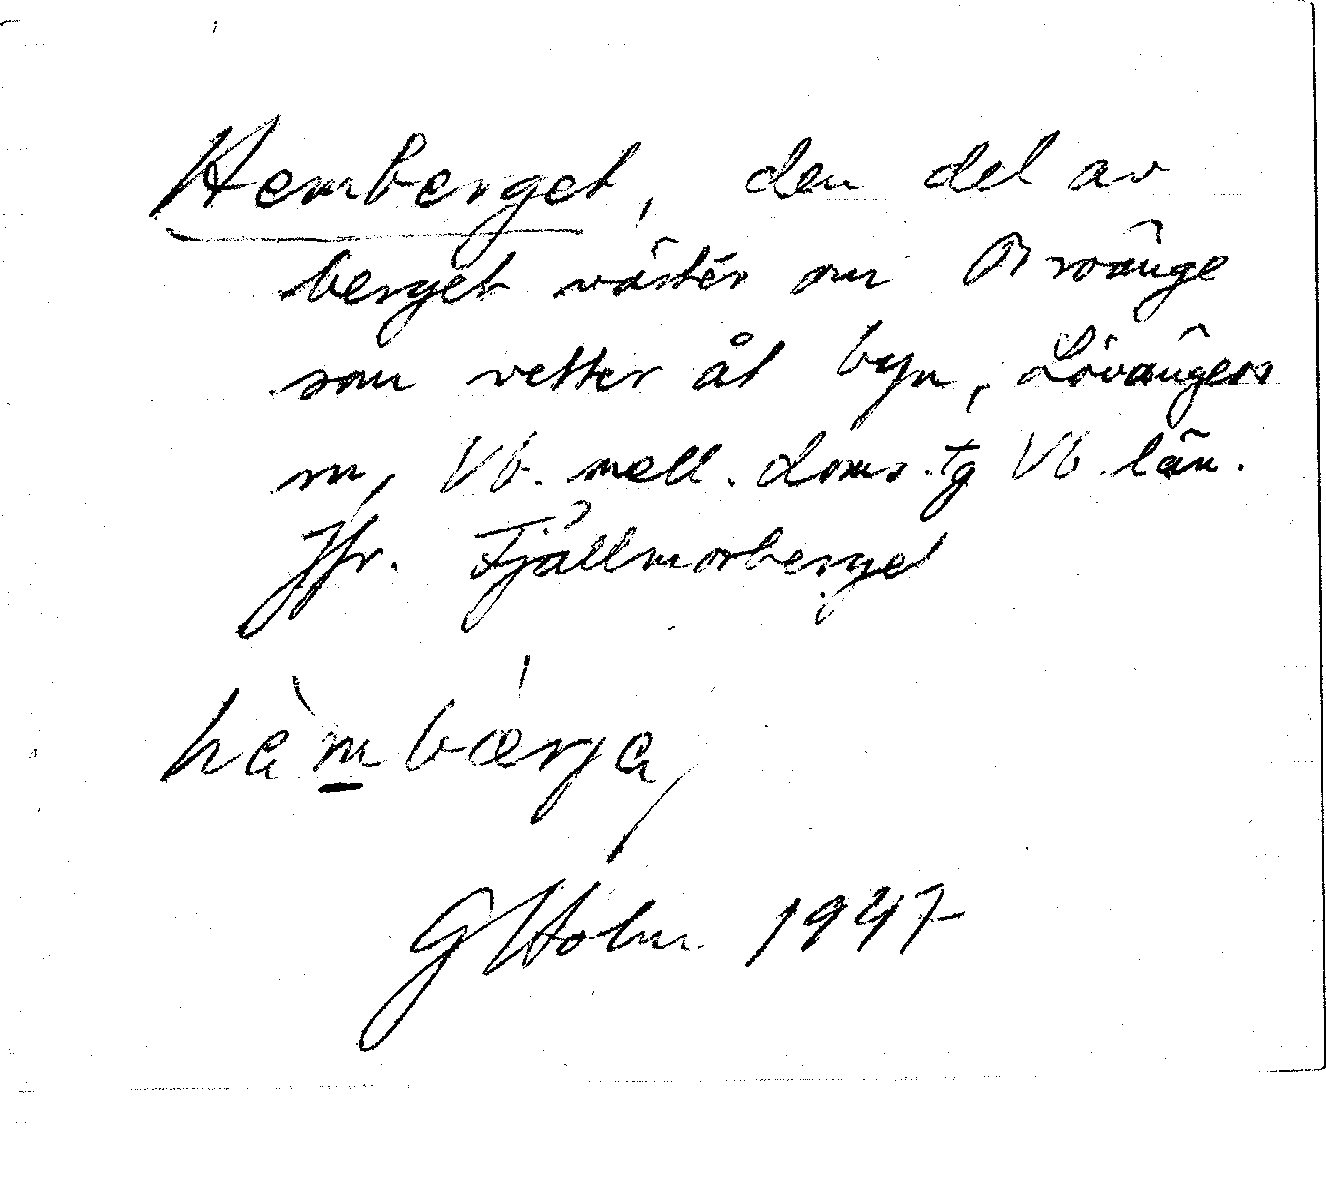 Hemberget, den del av
berget väster om Broänge
som vetter åt byn, Lövångers
sn, Vb. mell. doms. tg Vb län.
Jfr. Fjällmorberget
hèmbærja
GHolm 1947